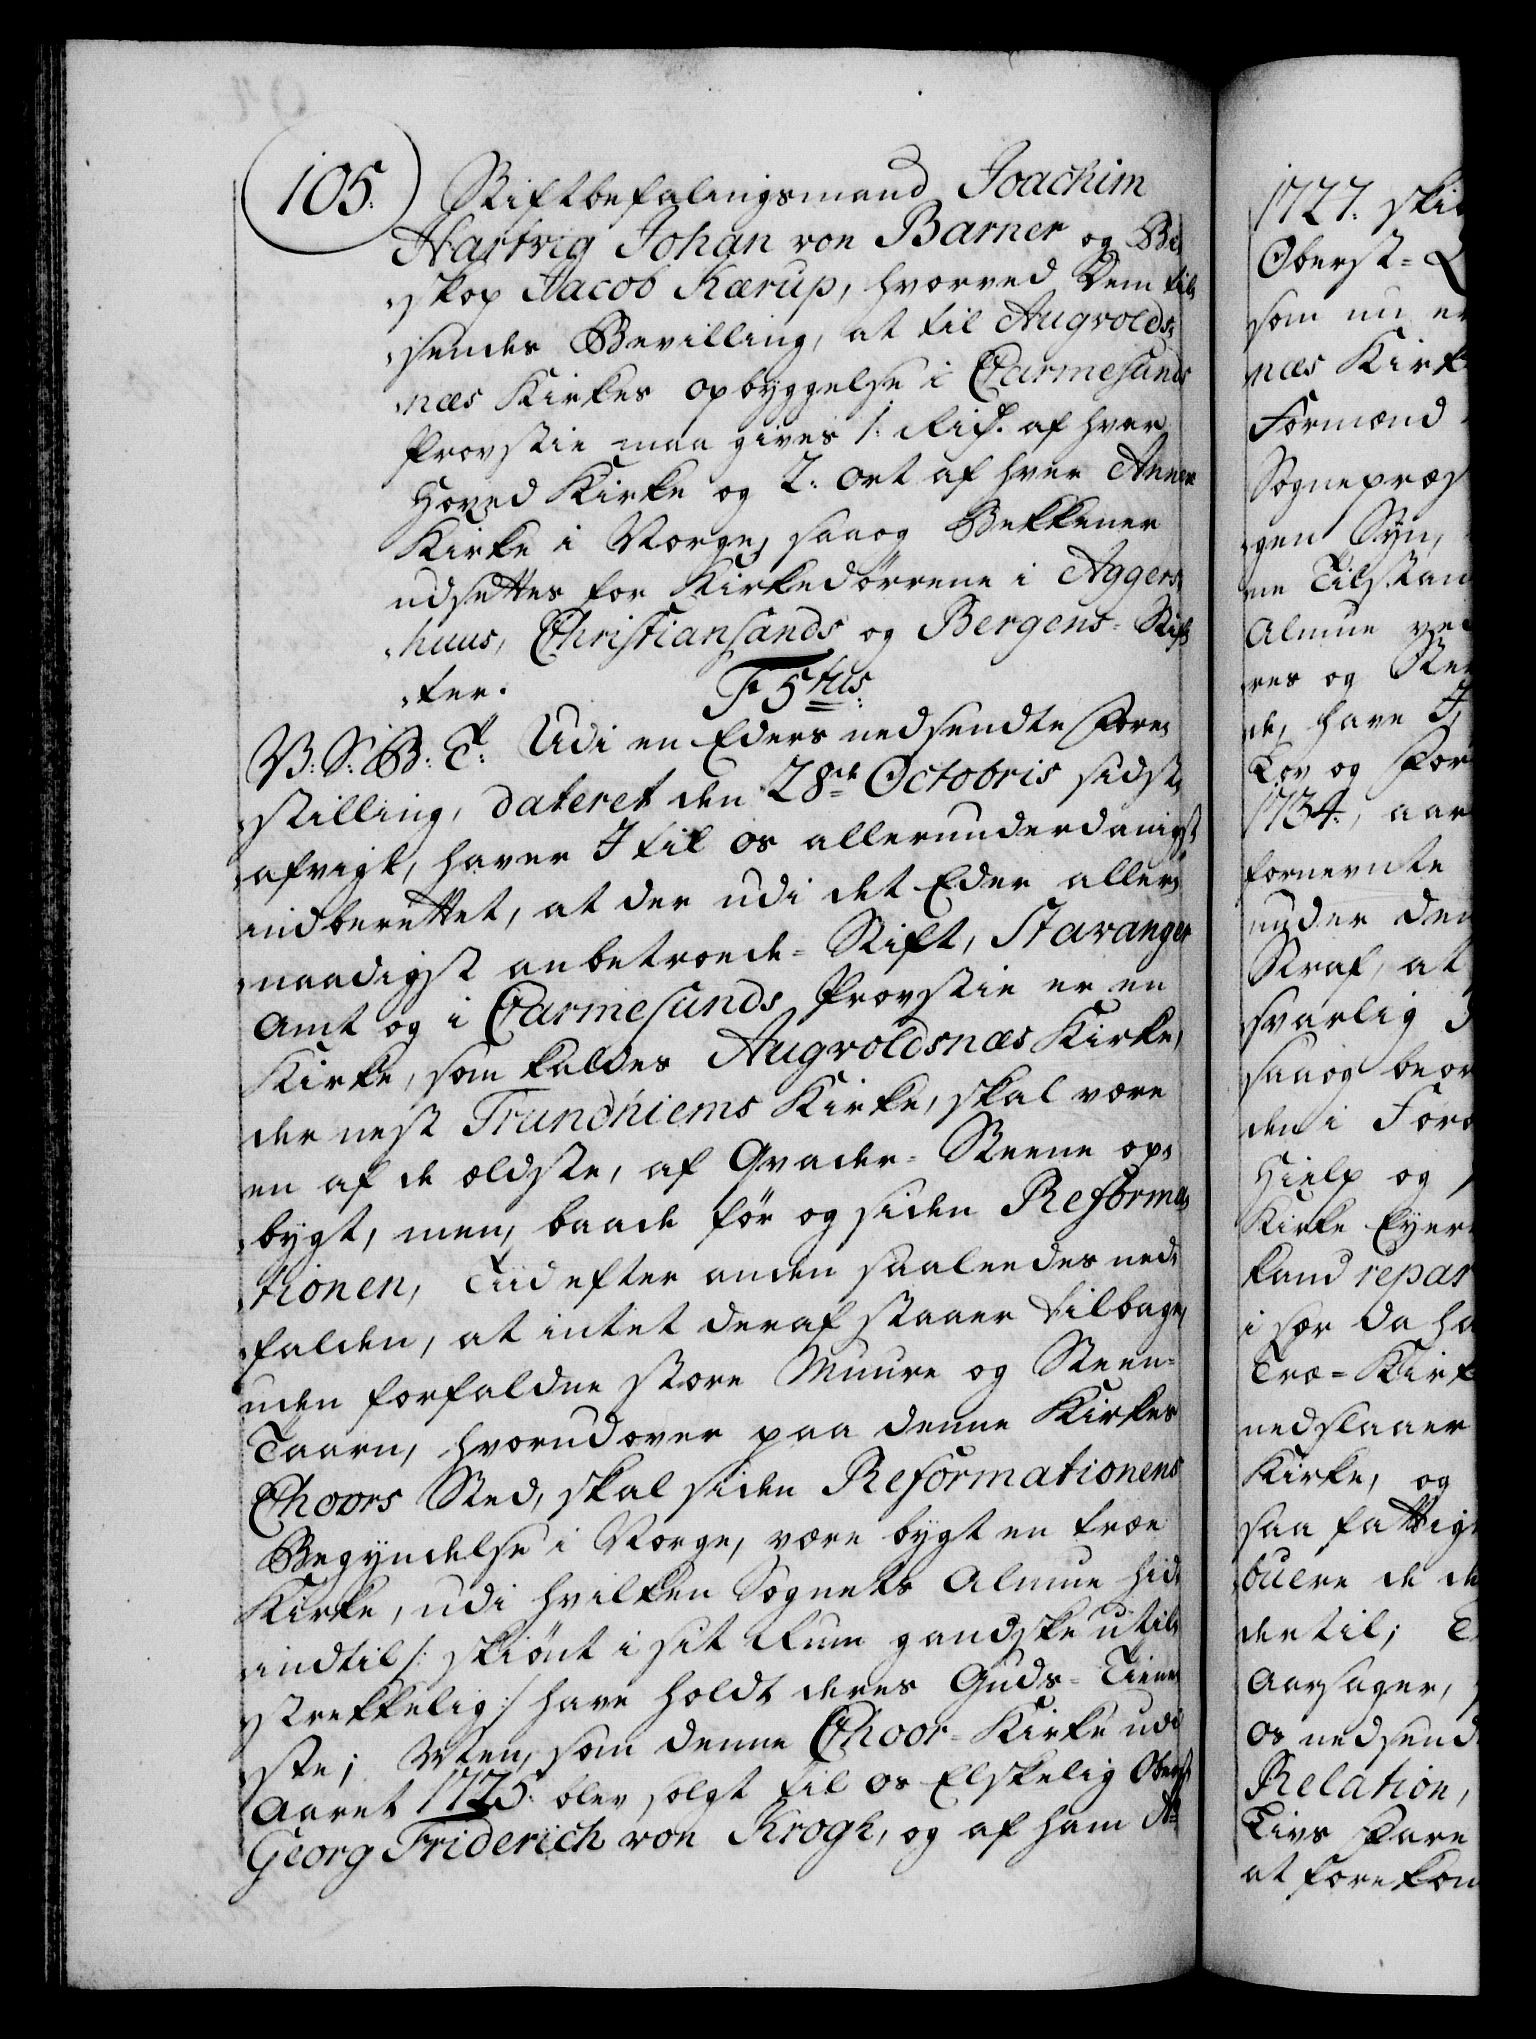 105. Stiftbefalingsmand Joachim
Hartvig Johan von Barner og Bi-
skop Jacob Kærup, hvorved Dem til-
sendes Bevilling, at til Augvolds-
næs Kirkes opbyggelse i Carmesunds
Provstie maa gives 1. Rixd. af hver
Hoved Kirke og 2. ort af hver Annex
Kirke i Norge, saaog Bekkener
udsættes for Kirkedørrene i Aggers-
huus, Christiansands og Bergens-Stif-
ter.
F 5tus.
V. S. B. T. Udi en Eders nedsendte Fore-
stilling, dateret den 28de Octobris sidst-
afvigt, haver I til os allerunderdanigst
indberettet, at der udi det Eder aller-
naadigst anbetroede Stift, Stavanger
Amt og i Carmesunds Provstie er en
Kirke, som kaldes Augvoldsnæs Kirke,
der nest Trundhiems Kirke, skal være
en af de ældste, af Qvader-Steene op-
bygt, men, baade før og siden Reforma-
tionen, Tiid efter anden saaledes ned-
falden, at intet deraf staaer tilbage,
uden forfaldne store Muure og Steen-
Taarn, hvorudover paa denne Kirkes
Choors Sted, skal siden Reformationens
Begyndelse i Norge, være bygt en træe
Kirke, udi hvilken Sognets Almue hid-
indtil /: skiønt i sit Rum gandske util-
strekkelig :/ have holdt deres Guds-Tiene-
ste; Men, som denne Choor-Kirke udi
Aaret 1725. blev solgt til os Elskelig Oberst
Georg Friderich von Krogh, og af ham Ao
1727. ski
Oberst-
som nu er
næs Kirk
Formænd
Sognepræs
gen Syn,
ne Tilstan
Almue ved
res og
de, have I,
Lov og For
1734., aar
fornevnte
under den
Straf, at
svarlig
saaog beor
den i Foro
Hielp og
Kirke Eyer
kand repar
i sær da ha
Træ-Kirk
nedslaaer
Kirke, og
saa fattig
buere de de
dertil;
Aarsager,
os nedsend
Relation,
Livs Fare
at forekom